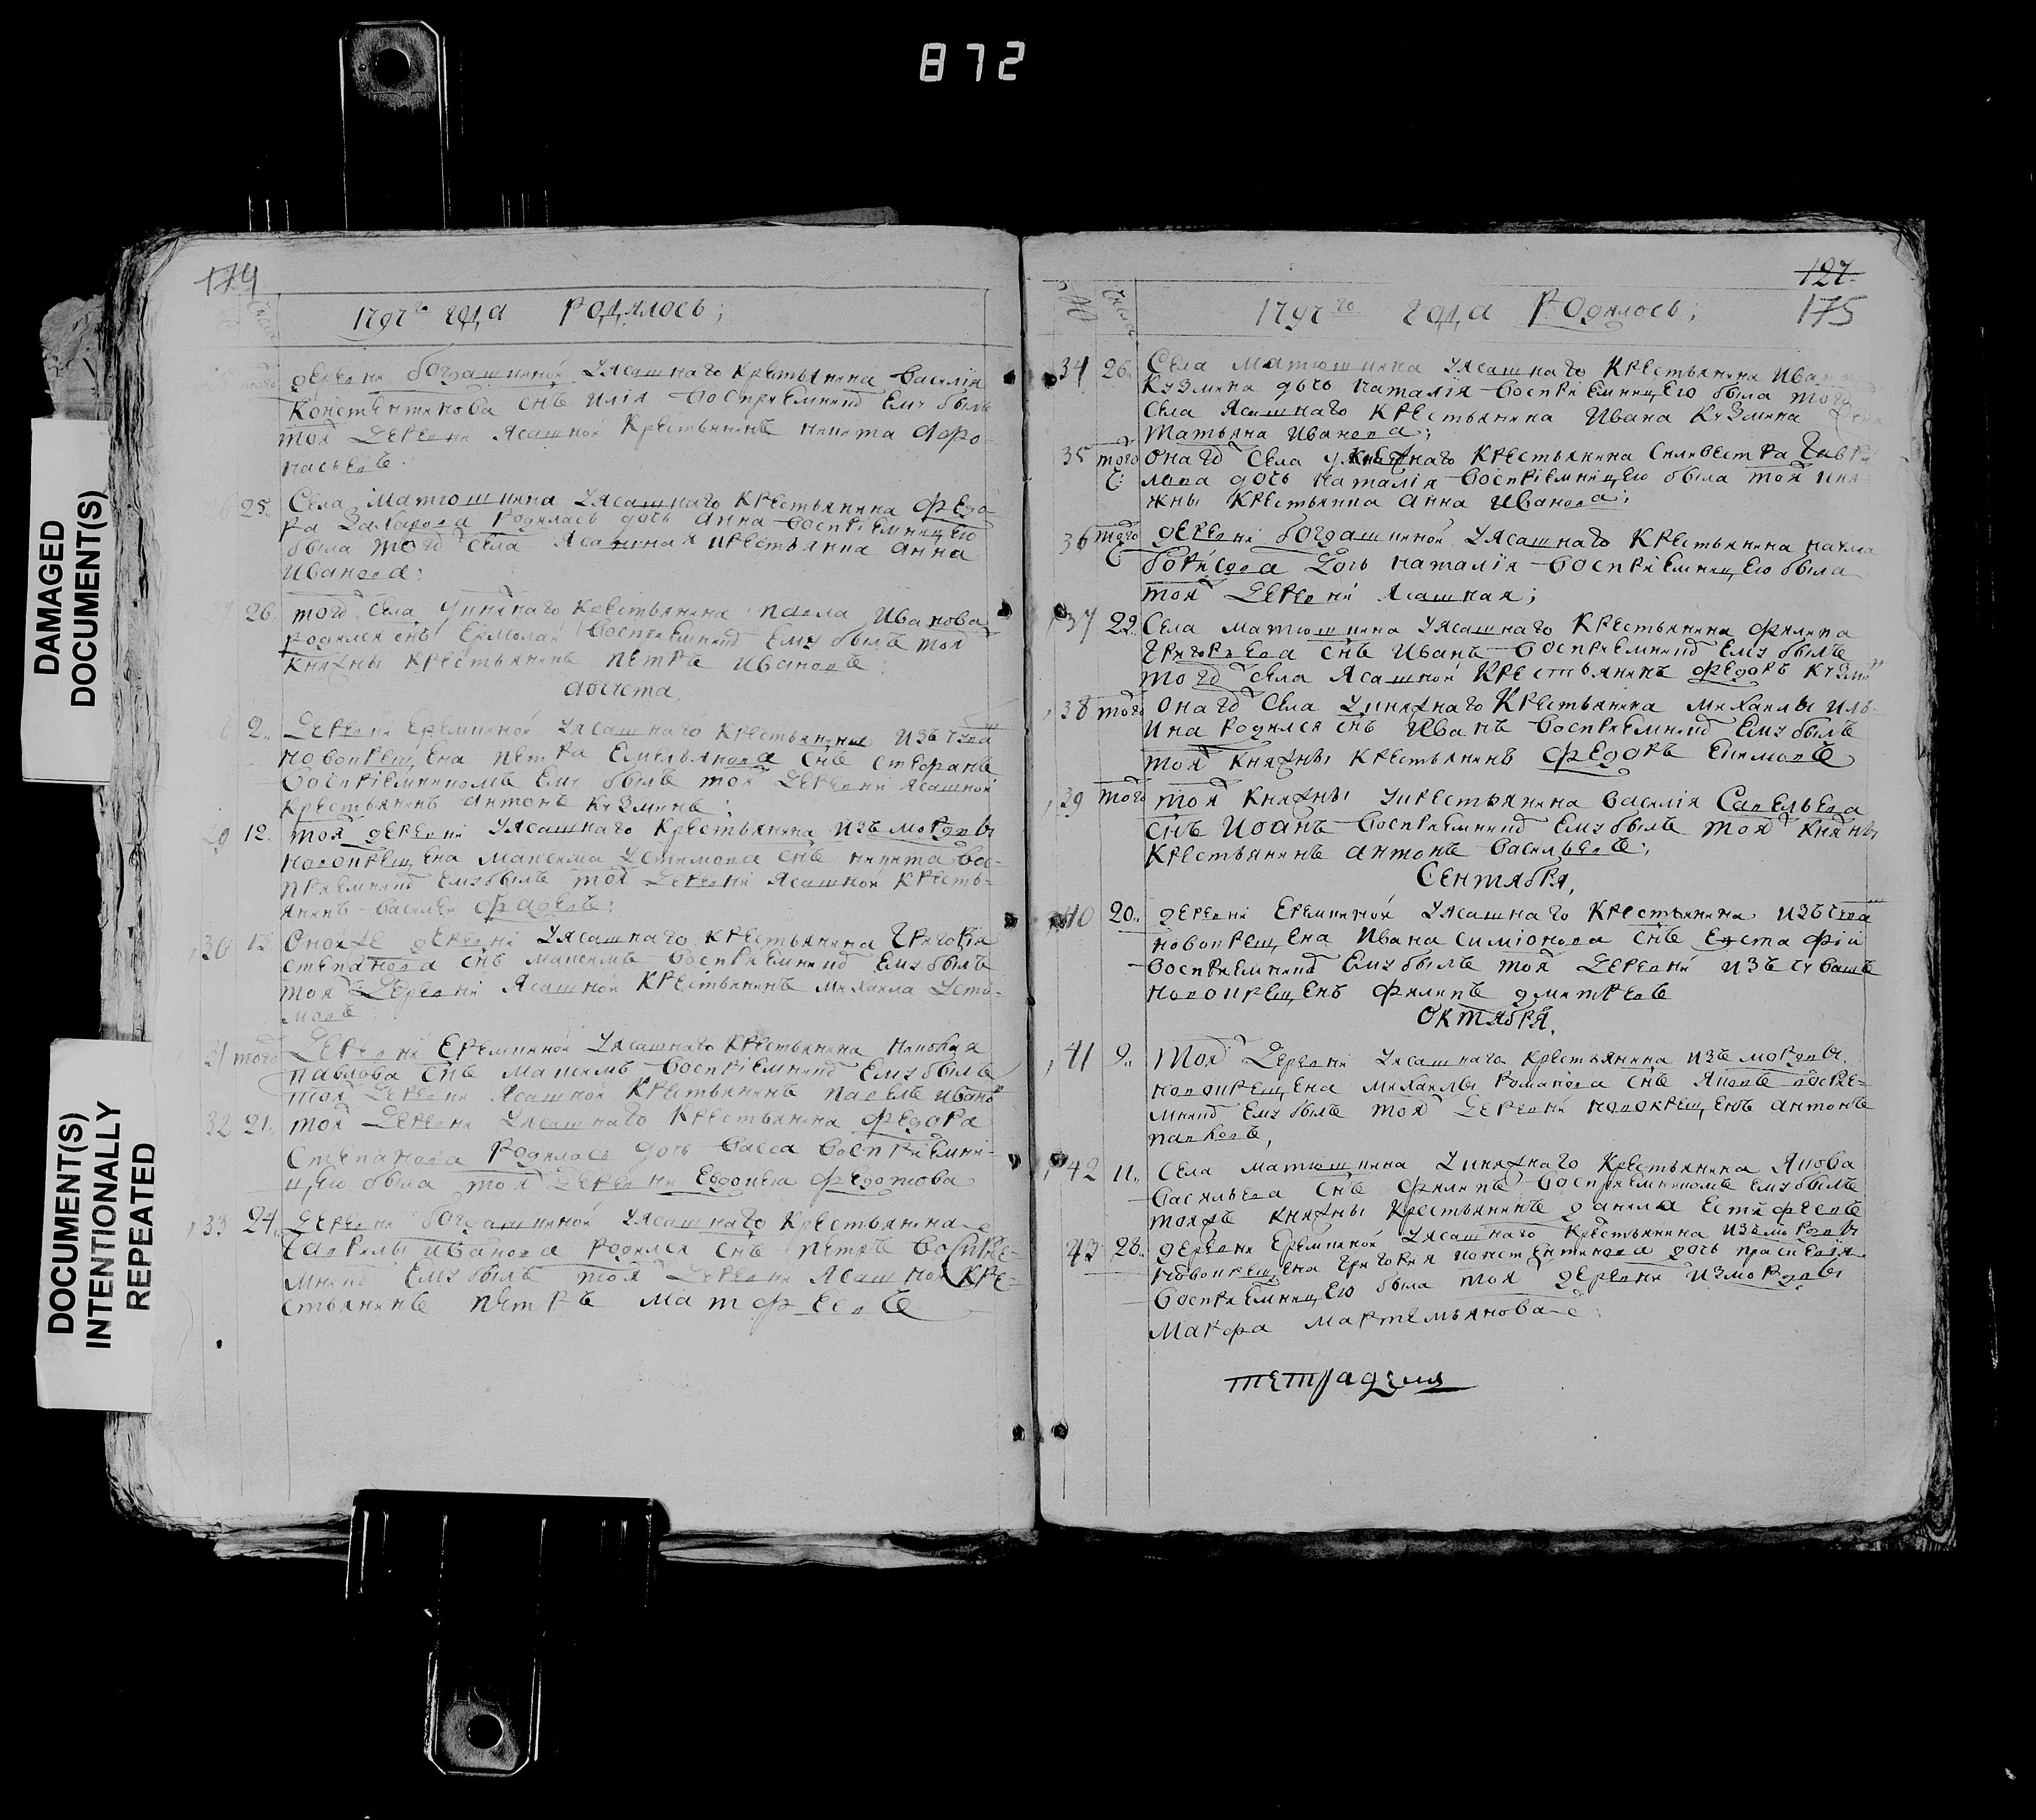 872
DAMAGED
DOCUMENT(S)
DOCUMENT(S)
INTENTIONALLY
REPEATED
174
1797го года родилось;
деревни богдашкиной Уясашнаго крестьянина василія
константинова снъ илія воспріемникъ ему былъ
тоя деревни Ясашной крестьянинъ никита афо-
насьевъ:
25. Села матюшкина Уясашнаго крестьянина федо-
ра захарова родилась дочь анна воспріемницею
была тогѡ села Ясашная крестьянка анна
иванова:
26 тогѡ села Укняжнаго крестьянина павла иванова
родился снъ ермолай воспріемникъ ему былъ тоя
княжны крестьянинъ петръ ивановъ:
августа,
2. деревни еремкиной Уясашнаго крестьянина изъ чува
новокрещена петра емельянова снъ стефанъ
воспріемникомъ ему былъ тоя деревни ясашной
крестьянинъ антонъ кузминъ:
29 12. тоя деревни Уясашнаго крестьянина изъ мордвы
новокрещена максима Устимова снъ никита вос-
пріемникъ ему былъ тоя деревни Ясашной кресть-
янинъ василеи фадеевъ:
30 13. Оной же деревни Уясашнаго крестьянина григорія
степанова снъ максимъ воспріемникъ ему былъ
тоя деревни Ясашной крестьянинъ михаила Усти-
мовъ
31 того деревни еремкиной Уясашнаго крестьянина
павлова снъ максимъ воспріемникъ ему былъ
тоя деревни Ясашной крестьянинъ павелъ ивановъ
32 21. тоя деревни Уясашнаго крестьянина федора
степанова родилась дочь васса воспріемни-
цею была тоя деревни евдокея федотова
33 24. деревни богдашкиной Уясашнаго крестьянина
гаврилы иванова родился снъ петръ воспріе-
мникъ ему былъ тоя деревни Ясашной кре-
стьянинъ петръ матфеевъ
127.
175
1797го года Родилось;
34 26. Села матюшкина Уясашнаго крестьянина ивана
кузмина дочь наталія воспріемницею была того
села Ясашнаго крестьянина ивана кузмина жена
татьяна иванова;
35 того онагѡ села Укняжнаго крестьянина силивестра гаври-
С: лова дочь наталія воспріемницею была тоя кня-
жны крестьянка анна иванова:
36 того деревни богдашкиной Уясашнаго крестьянина
С борисова дочь наталія воспріемницею была
тоя деревни Ясашная;
37 29. Села матюшкина Уясашнаго крестьянина филипа
григорьева снъ иванъ воспріемникъ ему былъ
тогѡ села Ясашной крестьянинъ федоръ кузмин
38 того онагѡ села Укняжнаго крестьянина михаилы иль-
ина родился снъ иванъ воспріемникъ ему былъ
тоя княжны крестьянинъ федоръ екимовъ
39 того тоя княжны Укрестьянина василія савельева
снъ иоанъ воспріемникъ ему былъ тоя княжны
крестьянинъ антонъ васильевъ:
Сентября,
40 20. деревни еремкиной Уясашнаго крестьянина изъ чува
новокрещена ивана симіонова снъ евстафіи
воспріемникъ ему былъ тоя деревни изъ чувашъ
новокрещенъ филипъ дмитревъ
Октября,
41 9. тоя деревни Уясашнаго крестьянина изъ мордвы
новокрещена михаилы романова снъ яковъ воспріе-
мникъ ему былъ тоя деревни новокрещенъ антонъ
павловъ,
42 11. Села матюшкина Укняжнаго крестьянина якова
васильева снъ филипъ воспріемникомъ ему былъ
тояжъ княжны крестьянинъ данила естифеевъ
43 28. деревни еремкиной Уясашнаго крестьянина изъ мордвы
новокрещена григорія константинова дочь праскевія
воспріемницею была тоя деревни измордвы
марфа мартемьянова